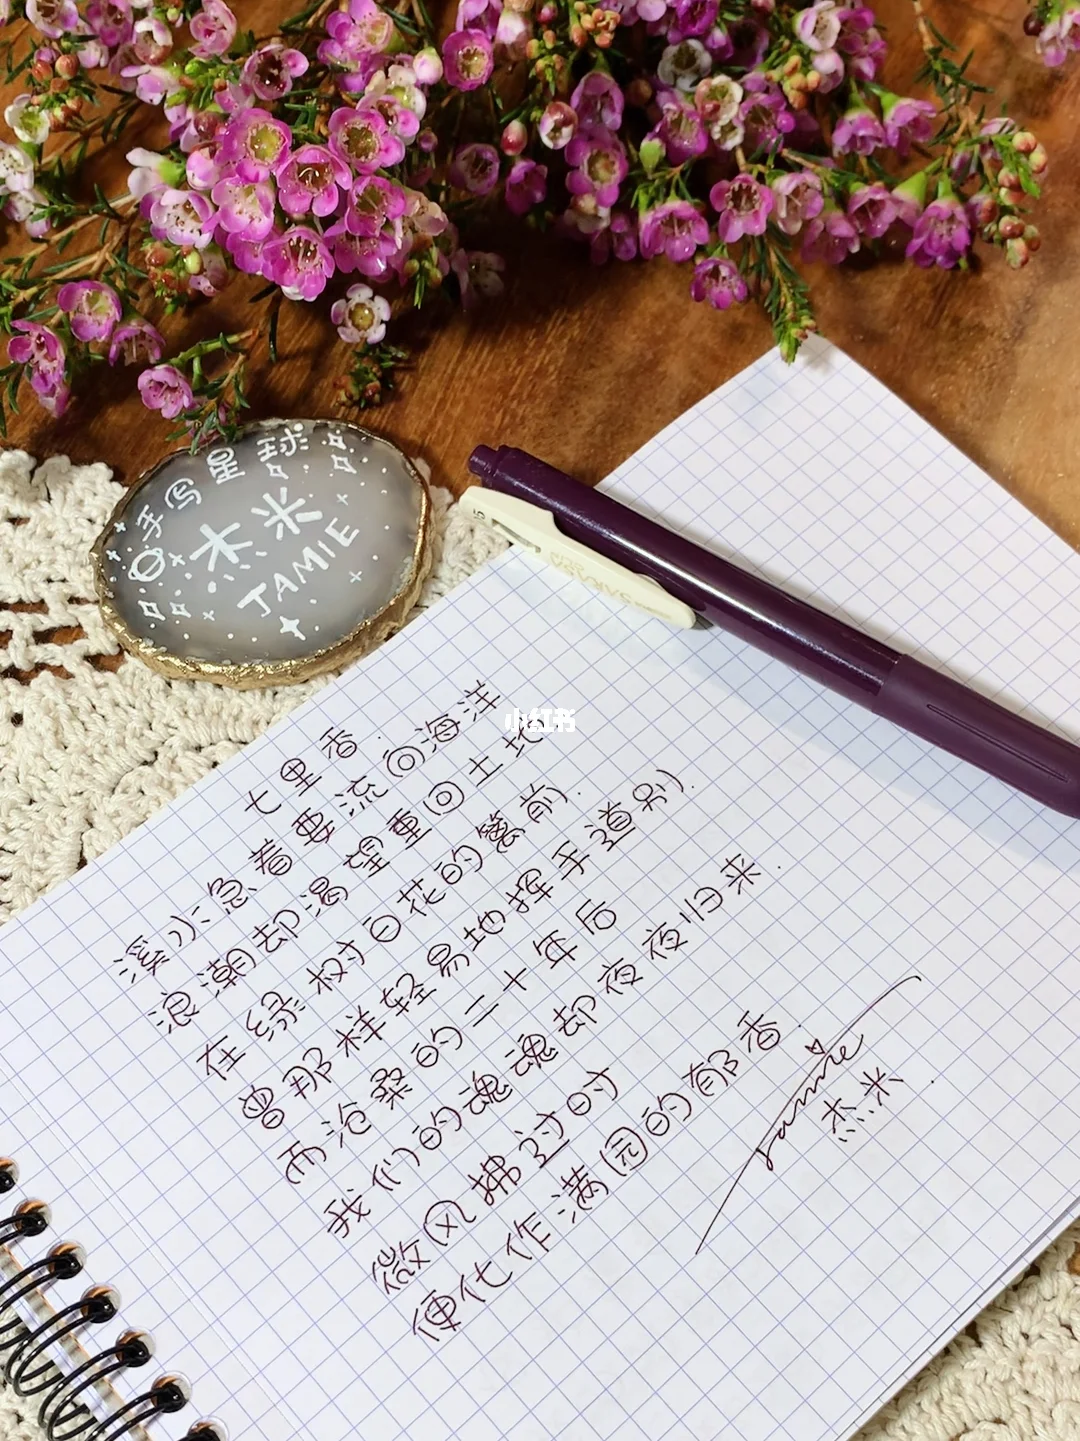 手写星球
杰米
JAMIE
SARASA
小红书
七里香.
溪水急着要流向海洋
浪潮却渴望重回土地.
在绿树白花的篱前.
曾那样轻易地挥手道别.
而沧桑的二十年后
我们的魂魂却夜夜归来.
微风拂过时
便化作满园的郁香.
Jamie
杰米.